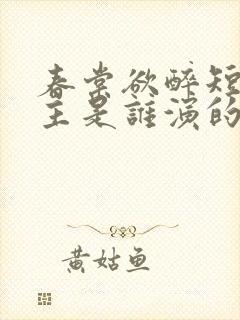 春棠欲醉短
主是誰演的
黄姑鱼